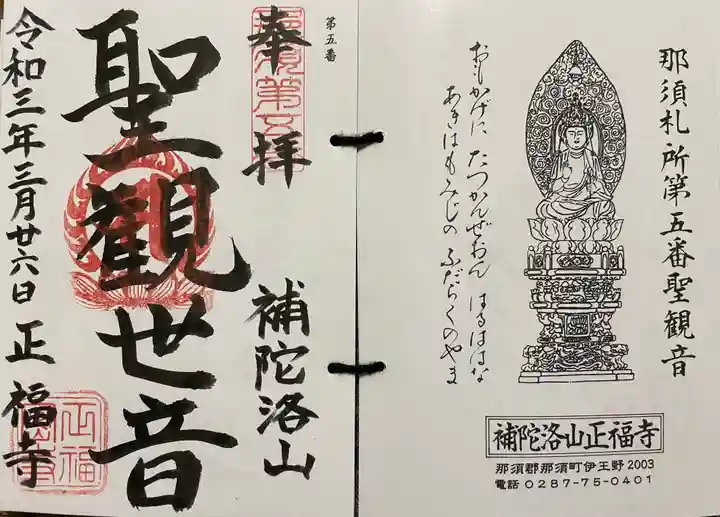 那須札所第五番聖観音
おもかげに たつかんぜおん はるははな
あきはもみじの ふだらくのやま
補陀洛山正福寺
那須郡那須町伊王野2003
電話 0287-75-0401
第五番
奉拝
補陀洛山
聖観世音
令和三年三月廿六日 正福寺